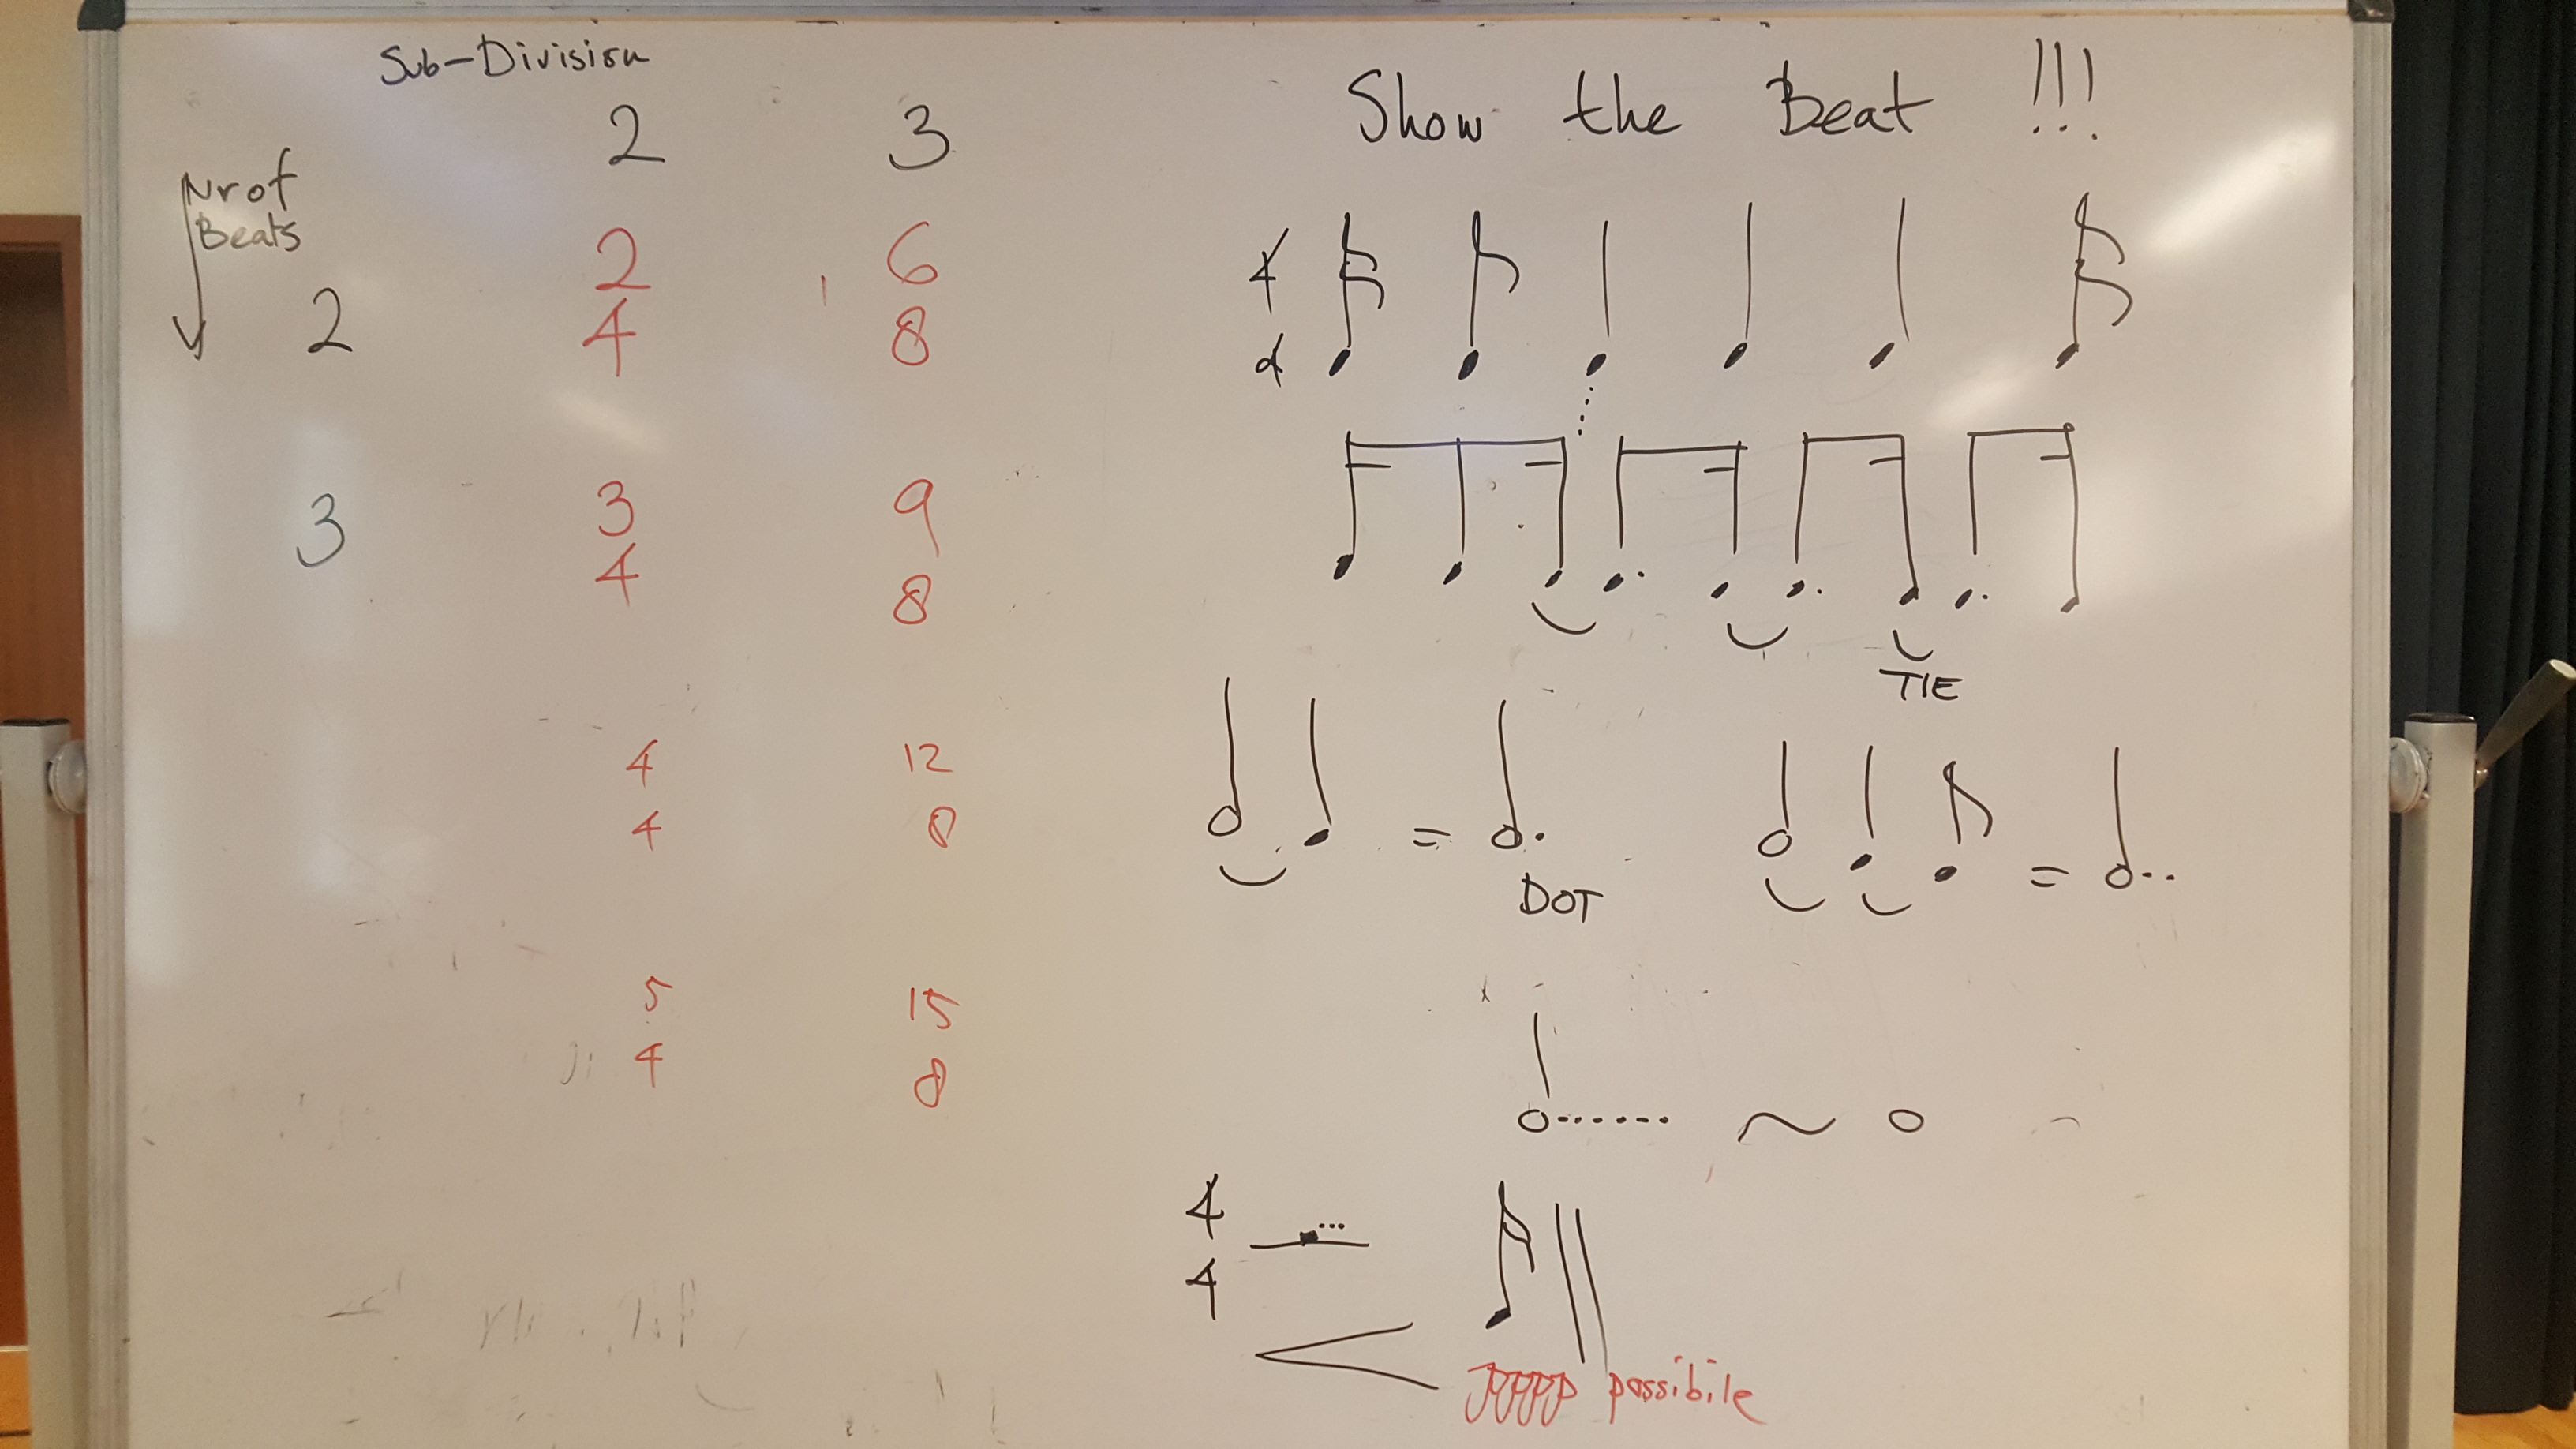 Sub-Division
2 3
Nr of
Beats
2
2
4
6
8
3
3
4
9
8
4
4
12
8
5
4
15
8
Show the Beat !!!
4
4
TIE
=
DOT
=
~
4
4
possibile